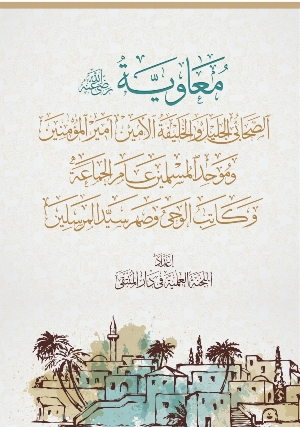 معاوية رضي الله عنه
الصحابي الجليل والخليفة الأمين أمير المؤمنين
وموحد المسلمين عام الجماعة
وكاتب الوحي وصهر سيد المرسلين
إعداد
اللجنة العلمية في دار المنتقى